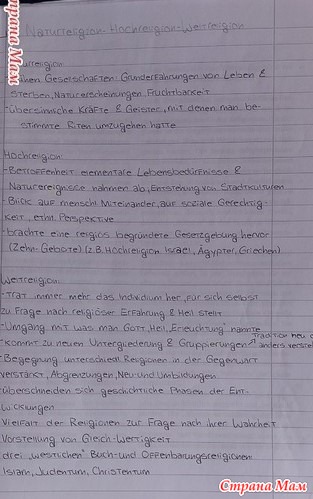 Naturreligion-Hochreligion-Weltreligion
Naturreligion:
frühen Gesellschaften: Grunderfahrungen von Leben &
Sterben, Naturerscheinungen Fruchtbarkeit
-übersinnliche Kräfte & Geister, mit denen man be-
stimmte Riten umzugehen hatte
Hochreligion:
-Betroffenheit elementare Lebensbedürfnisse &
Naturereignisse nahmen ab, Entstehung von Stadtkulturen
-Blick auf menschl. Miteinander, auf soziale Gerechtig-
keit, ethn. Perspektive
-brachte eine religiös begründete Gesetzgebung hervor
(Zehn-Gebote) (z.B. Hochreligion Israel, Ägypter, Griechen)
Weltreligion:
-Trat immer mehr das Individium her, für sich selbst
zu Frage nach religiöser Erfahrung & Heil stellt
-Umgang mit was man Gott, Heil, Erleuchtung nannte
-kommt zu neuen Untergliederung & Gruppierungen → Tradition neu
anders versteh
-Begegnung unterschiedl. Religionen in der Gegenwart
verstärkt, Abgrenzungen, Neu-und Umbildungen
-überschneiden sich geschichtliche Phasen der Ent-
wicklungen
Vielfalt der Religionen zur Frage nach ihrer Wahrheit
Vorstellung von Gleich-Wertigkeit
drei "westlichen" Buch-und Offenbarungsreligionen
Islam, Judentum, Christentum
Страна Мам
Страна Мам